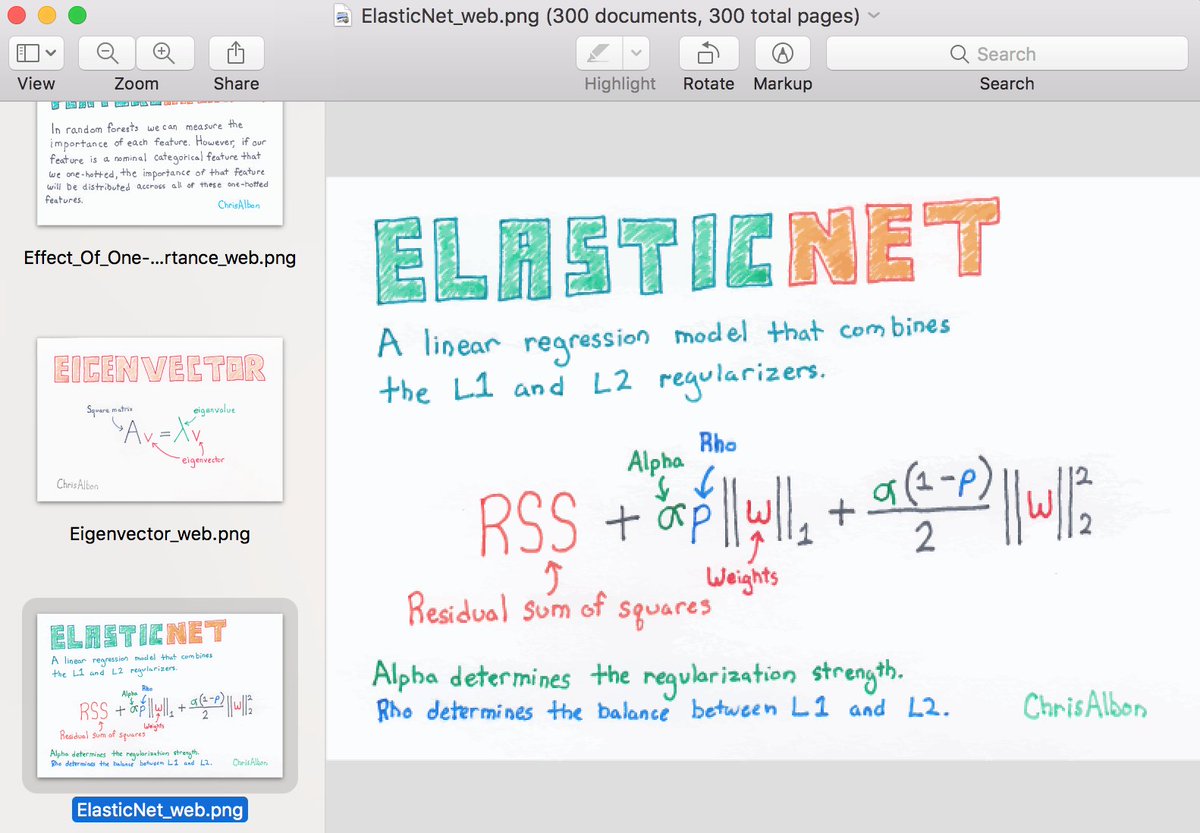 ElasticNet_web.png (300 documents, 300 total pages)
View
Zoom
Share
Highlight
Rotate
Markup
Search
Search
In random forests we can measure the
importance of each feature. However, if our
feature is a nominal categorical feature that
we one-hotted, the importance of that feature
will be distributed accross all of these one-hotted
features.
ChrisAlbon
Effect_Of_One-...rtance_web.png
EIGENVECTOR
Square matrix
eigenvalue
Av = λv
eigenvector
ChrisAlbon
Eigenvector_web.png
ELASTICNET
A linear regression model that combines
the L1 and L2 regularizers.
Alpha
Rho
RSS + αρ||w||₁ + α(1-ρ)/2 ||w||²₂
Weights
Residual sum of squares
Alpha determines the regularization strength.
Rho determines the balance between L1 and L2.
ChrisAlbon
ElasticNet_web.png
ELASTICNET
A linear regression model that combines
the L1 and L2 regularizers.
Rho
Alpha
RSS + αρ||w||₁ + α(1-ρ)/2 ||w||²₂
Weights
Residual sum of squares
Alpha determines the regularization strength.
Rho determines the balance between L1 and L2.
ChrisAlbon